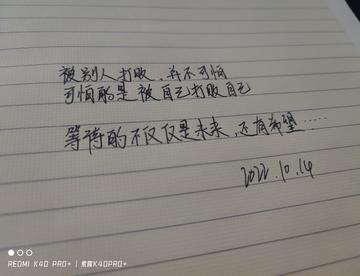 被别人打败，并不可怕
可怕的是被自己打败自己
等待的不仅仅是未来，还有希望……
2022.10.14
REDMI K40 PRO+ | 索隆K40PRO+